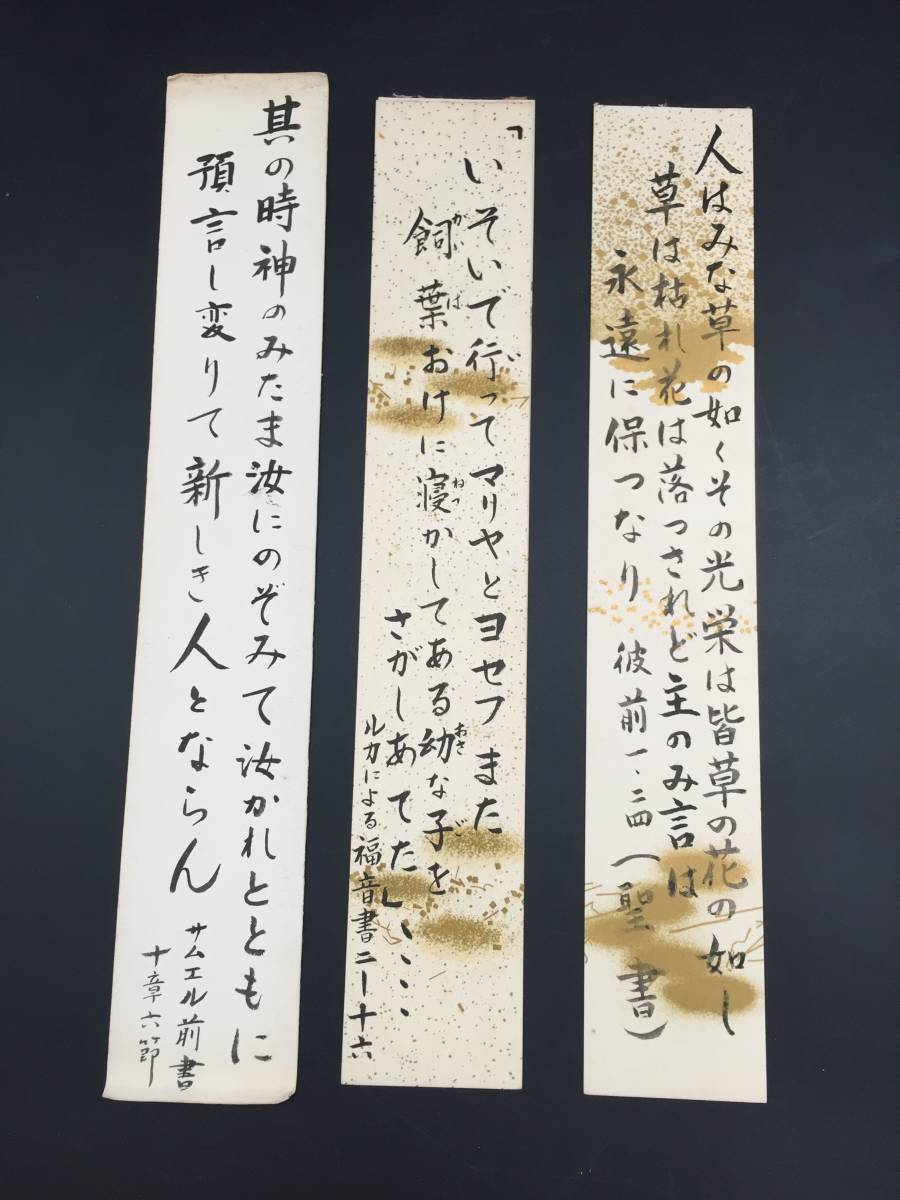 人はみな草の如くその光栄は皆草の花の如し
草は枯れ花は落つされど主のみ言は
永遠に保つなり 彼前一・二四(聖書)
「いそいで行ってマリヤとヨセフ また
飼葉おけに寝かしてある幼な子を
さがしあてた」、、、、
ルカによる福音書二ー十六
其の時神のみたま汝にのぞみて汝かれとともに
預言し変りて新しき人とならん
サムエル前書
十章六節